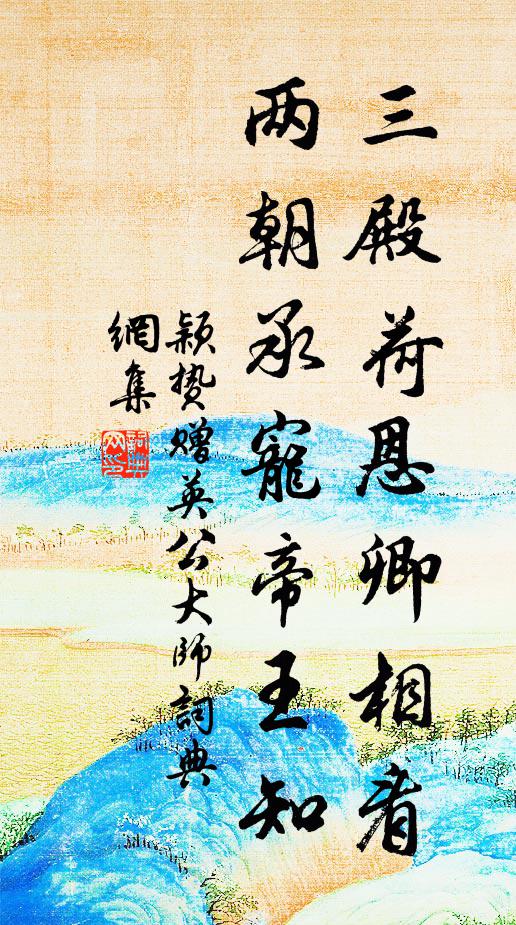 三殿荷恩卿相看
两朝承寵帝王知
穎贄贈英公大師詞典
網集